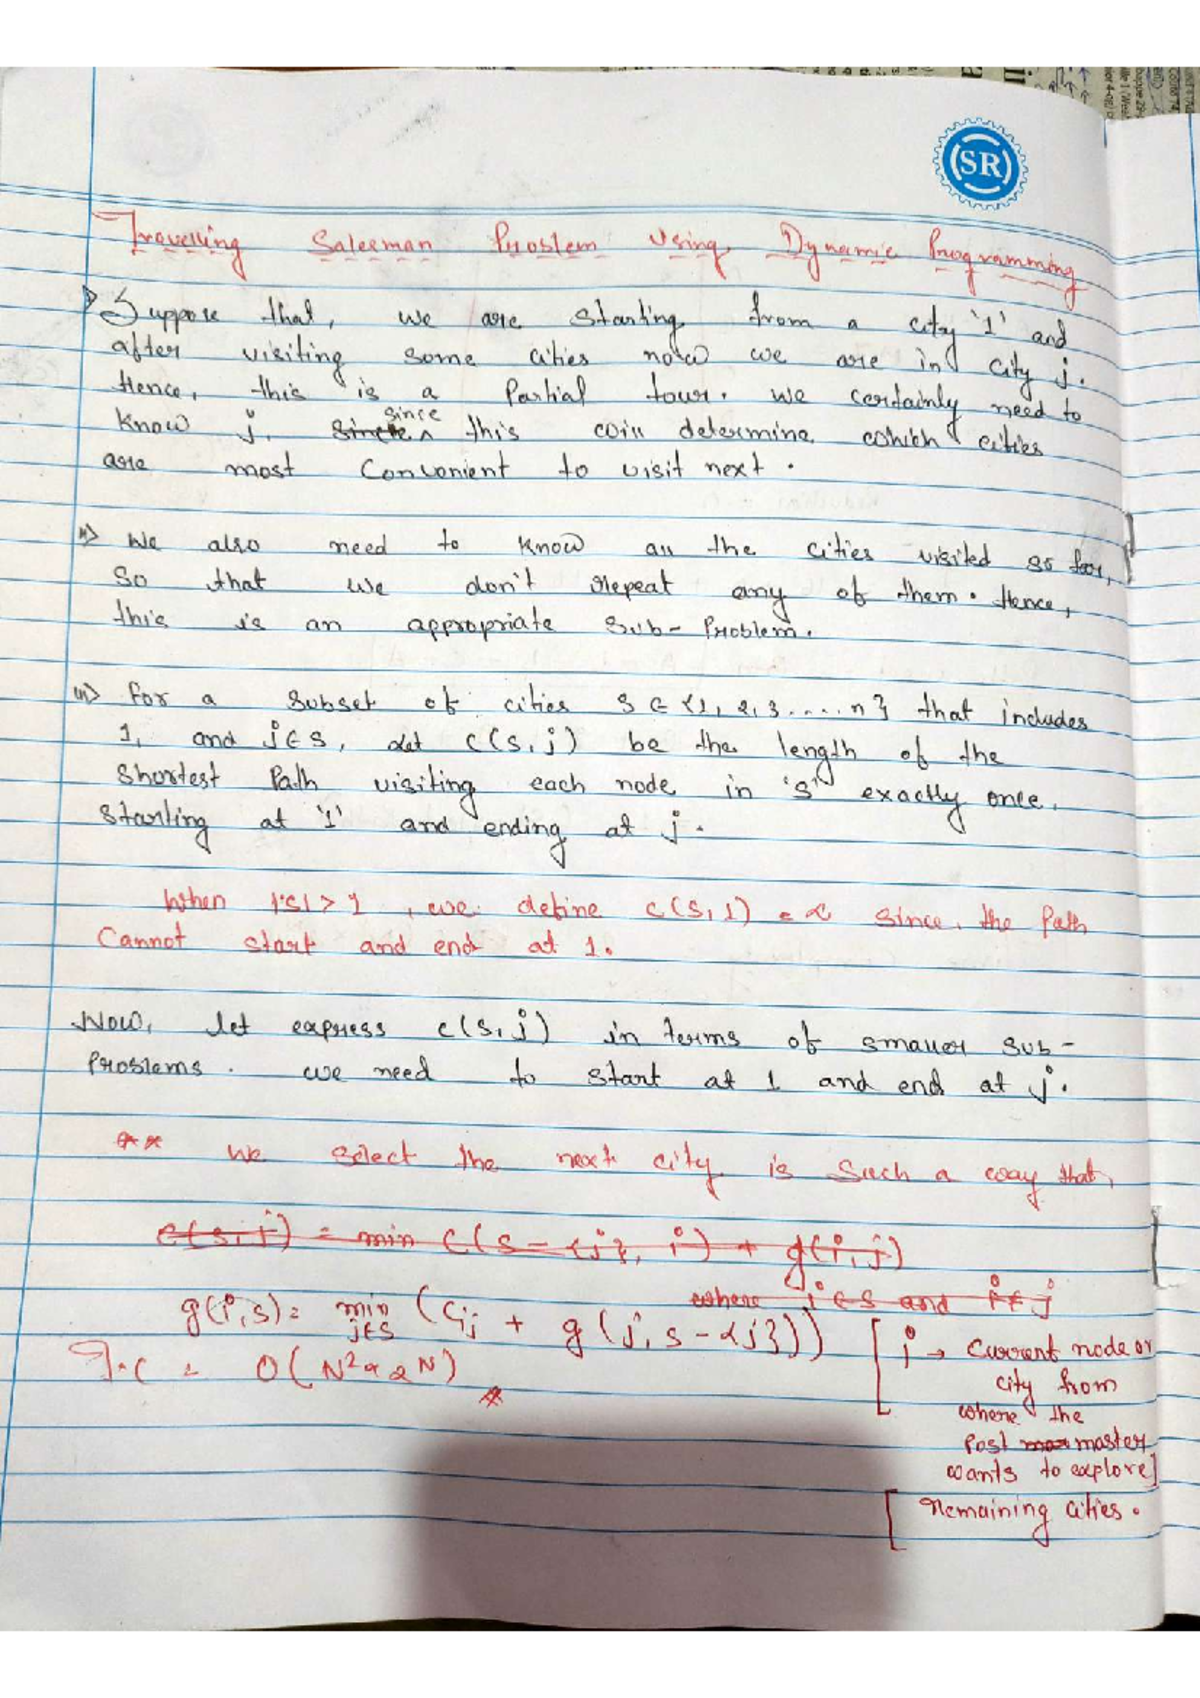 SR
Travelling Salesman Problem Using Dynamic Programming
i> Suppose that, we are starting from a city '1' and
after visiting some cities now we are in city j.
Hence, this is a Partial tour. we certainly need to
know j. since this will determine which cities
are most Convenient to visit next.
ii> We also need to know all the cities visited so far,
So that we don't repeat any of them. Hence,
this is an appropriate Sub-Problem.
iii> For a subset of cities S ∈ {1, 2, 3 .... n} that includes
1, and j ∈ S, let C(S, j) be the length of the
Shortest Path visiting each node in 'S' exactly once,
Starting at '1' and ending at j.
When |S| > 1, we define C(S, 1) = ∝ since, the Path
Cannot start and end at 1.
Now, let express C(S, j) in terms of smaller sub-
Problems. We need to start at 1 and end at j.
** We select the next city is such a way that,
C(S, j) = min C(S - {j}, i) + g(i, j)
where j ∈ S and i ≠ j
g(i, s) = min j∈S (Cij + g(j, S - {j}))
T.C = O(N² * 2^N)
[ i → Current node or
city from
where the
Post master
wants to explore]
[ Remaining cities.